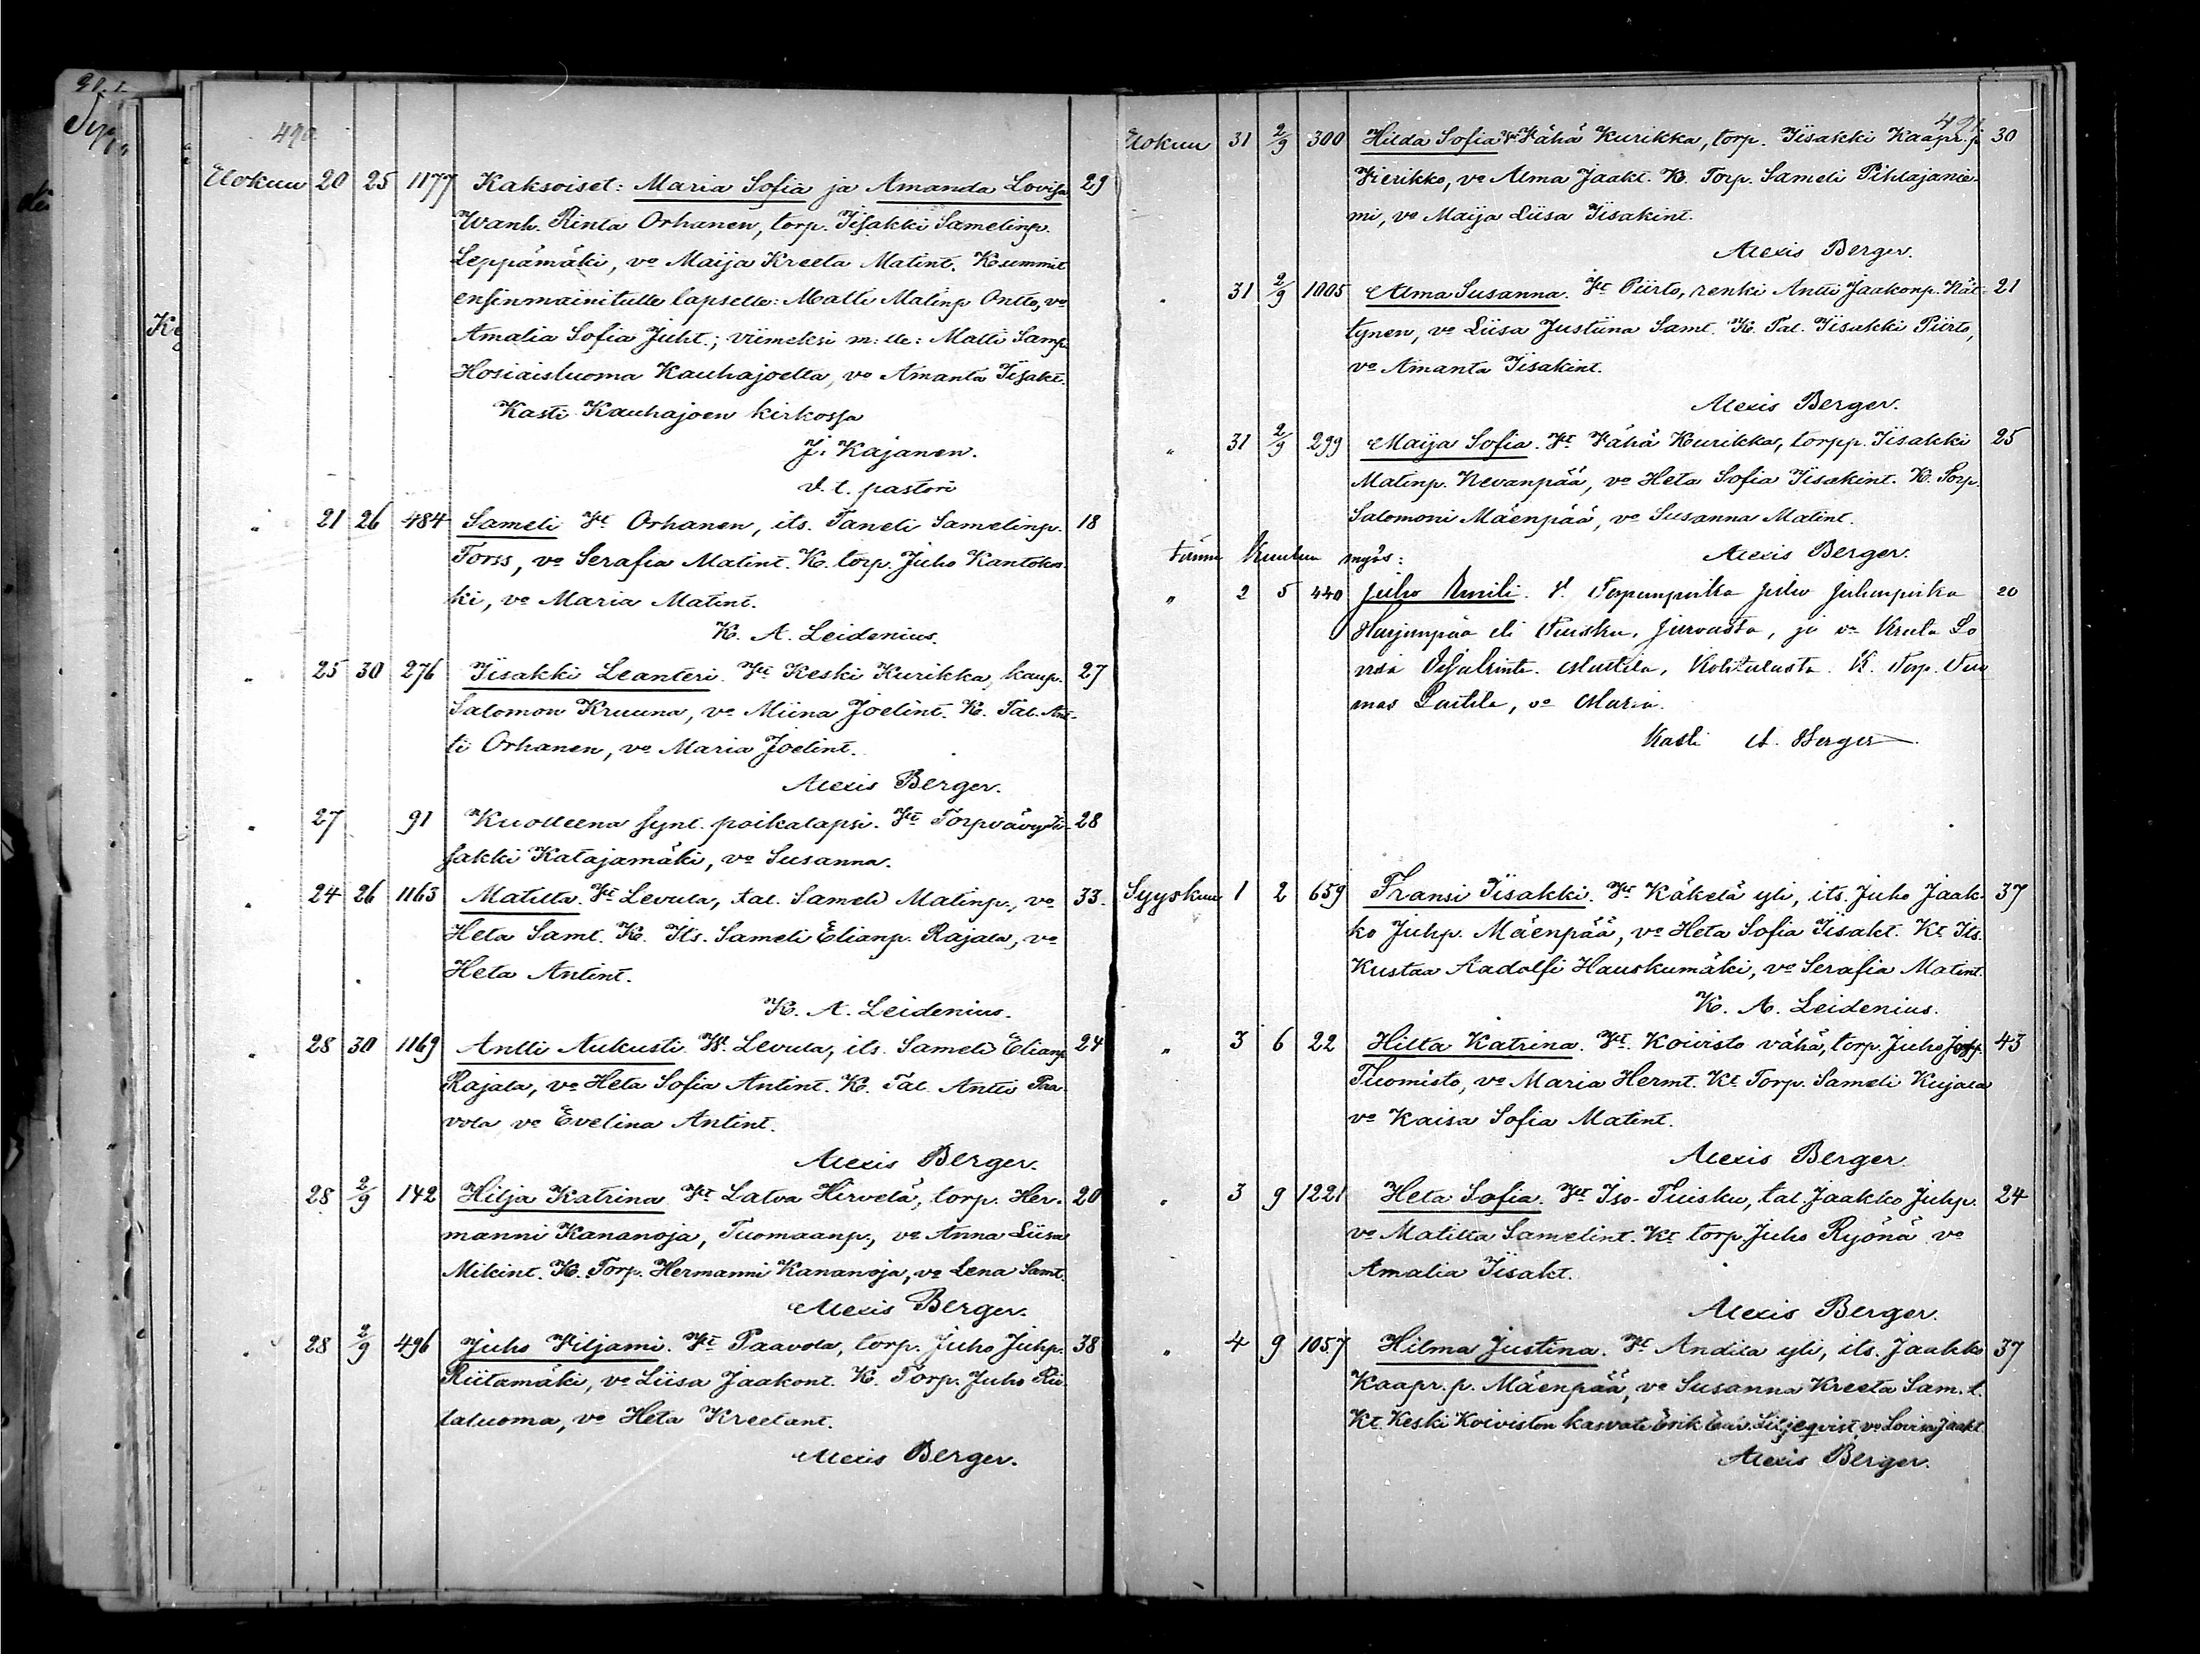 490
Elokuu 20 25 1177 Kaksoiset: Maria Sofia ja Amanda Lovisa 29
Wanh. Rinta Orhanen, torp. Iisakki Samelinp.
Leppämäki, vo Maija Kreeta Matint. Kummit
ensinmainitulle lapselle: Matti Matinp Ontto, vo
Amalia Sofia Juht.; viimeksi m:lle: Matti Samp.
Hosiaisluoma Kauhajoelta, vo Amanta Iisakt.
Kasti Kauhajoen kirkossa
J. Kajanen.
v. t. pastori
" 21 26 484 Sameli Vt Orhanen, its. Taneli Samelinp. 18
Torss, vo Serafia Matint. K. torp. Juho Kantokos
ki, vo Maria Matint.
K. A. Leidenius.
" 25 30 276 Iisakki Leanteri. Vt Keski Kurikka, kaup. 27
Salomon Kruuna, vo Miina Joelint. K. Tal. Ant-
ti Orhanen, vo Maria Joelint.
Alexis Berger.
" 27 91 Kuolleena synt. poikalapsi. Vt Torpvävy Ii- 28
sakki Katajamäki, vo Susanna.
" 24 26 1163 Matilta. Vt Levula, tal. Sameli Matinp., vo 33.
Heta Samt. K. Its. Sameli Elianp. Rajala, vo
Heta Antint.
K. A. Leidenius.
" 28 30 1169 Antti Aukusti. Vt. Levula, its. Sameli Elianp 24
Rajala, vo Heta Sofia Antint. K. Tal. Antti Paa
vola vo Evelina Antint.
Alexis Berger.
28 2/9 142 Hilja Katrina Vt Latva Hirvelä, torp. Her- 20
manni Kananoja, Tuomaanp., vo Anna Liisa
Mikint. K. Torp. Hermanni Kananoja, vo Lena Samt.
Alexis Berger.
" 28 2/9 496 Juho Viljami. Vt Paavola, torp. Juho Juhp. 38
Riitamäki, vo Liisa Jaakont. K. Torp. Juho Rii
taluoma, vo Heta Kreetant.
Alexis Berger.
491
Elokuu 31 2/9 300 Hilda Sofia Vt Vähä Kurikka, torp. Iisakki Kaapr.p 30
Vierikko, vo Alma Jaakt. K. Torp. Sameli Pihlajanie-
mi, vo Maija Liisa Iisakint.
Alexis Berger.
" 31 2/9 1005 Alma Susanna. Vt Piirto, renki Antti Jaakonp. Kät- 21
tynen, vo Liisa Justiina Samt. K. Tal. Iisakki Piirto,
vo Amanta Iisakint.
Alexis Berger.
" 31 2/9 299 Maija Sofia. Vt Vähä Kurikka, torpp. Iisakki 25
Matinp. Nevanpää, vo Heta Sofia Iisakint. K. Torp.
Salomoni Mäenpää, vo Susanna Matint.
Alexis Berger.
Tämän kuukun myös:
" 2 5 440 Juho Emili. V. Torpanpoika Juho Juhonpoika 20
Harjunpää eli Tuisku, Jurvasta, ja vo Kreeta Lo
visa Mattila,
mas vo Maria.
Kasti A. Berger
Syyskuu 1 2 659 Fransi Iisakki. Vt Käkelä yli, its. Juho Jaak- 37
ko Juhp. Mäenpää, vo Heta Sofia Iisakt. Kt Its.
Kustaa Aadolfi Hauskumäki, vo Serafia Matint.
K. A. Leidenius.
" 3 6 22 Hilta Katrina. Vt. Koivisto vähä, torp. Juho 43
Tuomisto, vo Maria Hermt. Kt Torp. Sameli Kujala
vo Kaisa Sofia Matint.
Alexis Berger.
" 3 9 1221 Heta Sofia. Vt Iso-Tuisku, tal. Jaakko Juhp. 24
vo Matilta Samelint. Kt torp Juho Ryönä vo
Amalia Iisakt.
Alexis Berger.
" 4 9 1057 Hilma Justina. Vt Andila yli, its. Jaakko 37
Kaapr. p. Mäenpää, vo Susanna Kreeta Sam. t.
Kt. Keski Koiviston kasvatti Erik Liljeqvist, vo Lovisa Jaakt.
Alexis Berger.